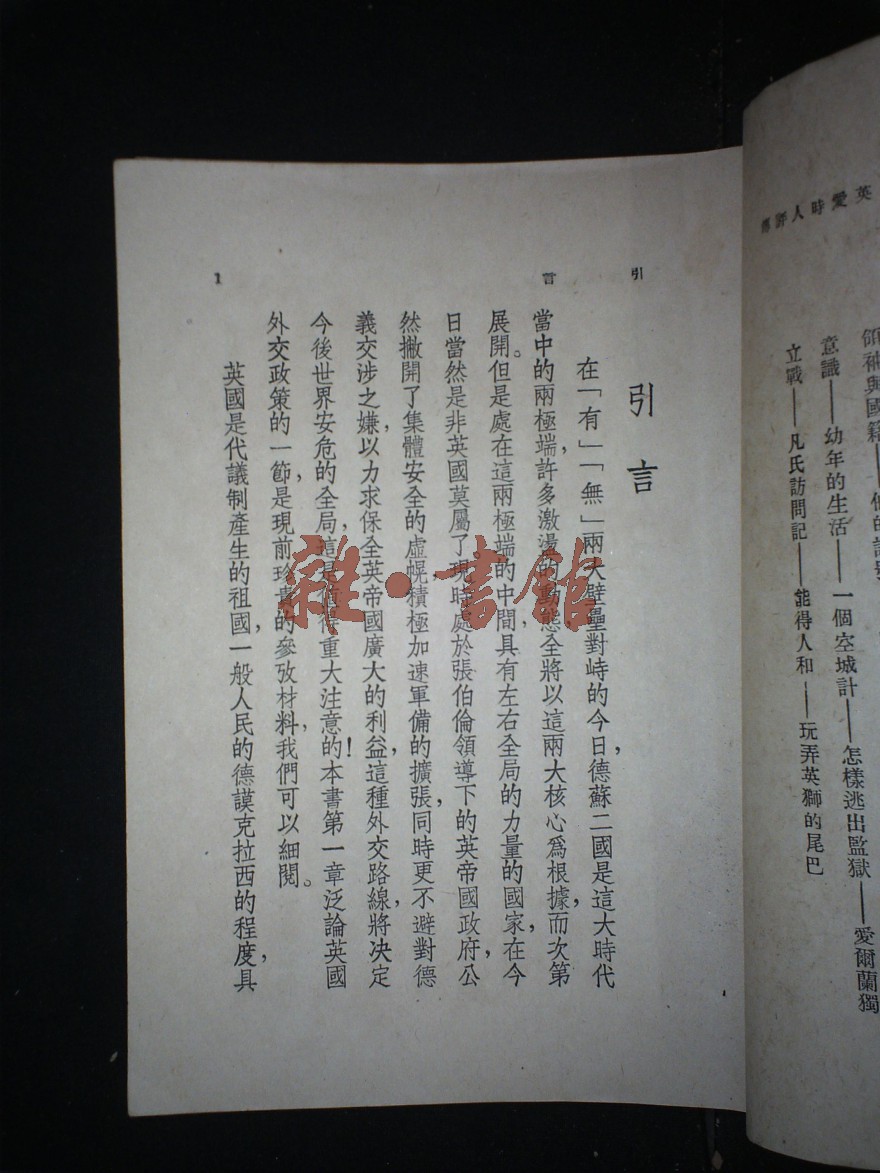 英愛時人評傳
領袖與國籍——他的
意識——幼年的生活——一個空城計——怎樣逃出監獄——愛爾蘭獨
立戰——凡氏訪問記——能得人和——玩弄英獅的尾巴
引言
引言
在「有」「無」兩大壁壘對峙的今日，德蘇二國是這大時代
當中的兩極端，許多激湯的動態，全將以這兩大核心爲根據，而次第
展開。但是處在這兩極端的中間，具有左右全局的力量的國家，在今
日當然是非英國莫屬了，現時處於張伯倫領導下的英帝國政府，公
然撇開了集體安全的虛幌，積極加速軍備的擴張，同時更不避對德
義交涉之嫌，以力求保全英帝國廣大的利益，這種外交路線，將決定
今後世界安危的全局，這是值得重大注意的！本書第一章泛論英國
外交政策的一節，是現前珍貴的參攷材料，我們可以細閱。
英國是代議制產生的祖國，一般人民的德謨克拉西的程度，具
1
雜·書館